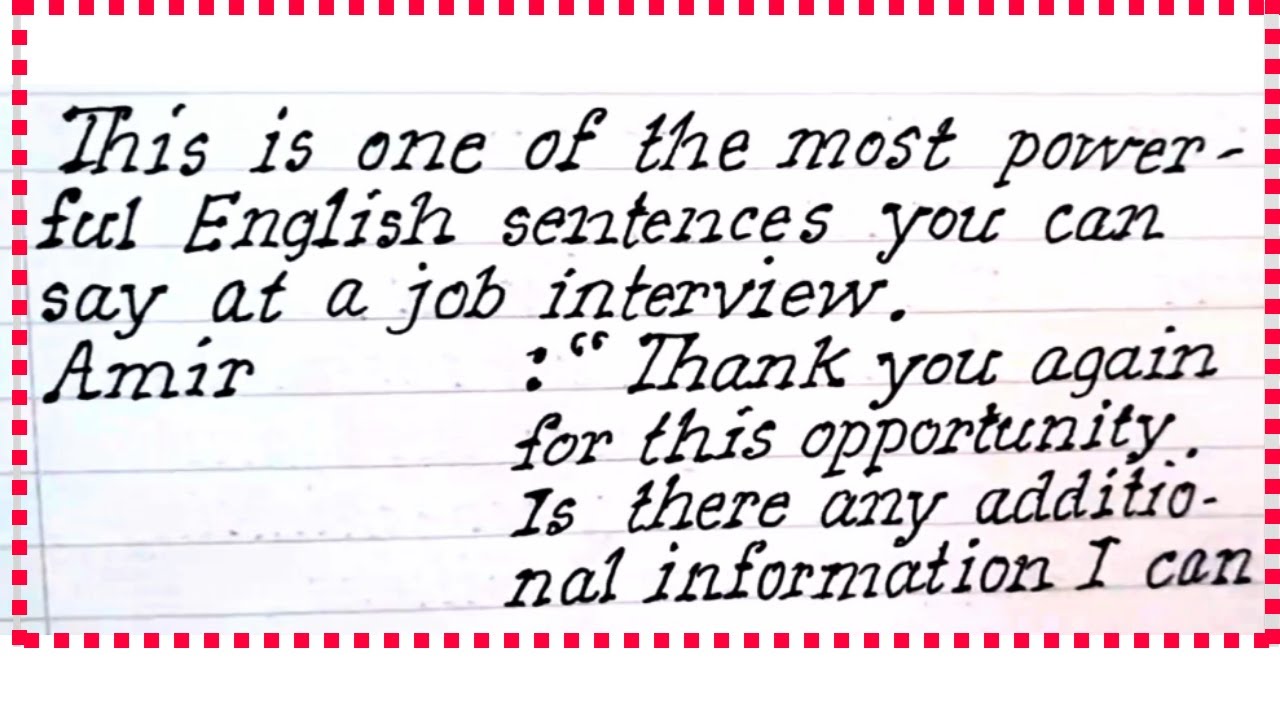 This is one of the most power-
ful English sentences you can
say at a job interview.
Amir : “ Thank you again
for this opportunity.
Is there any additio-
nal information I can